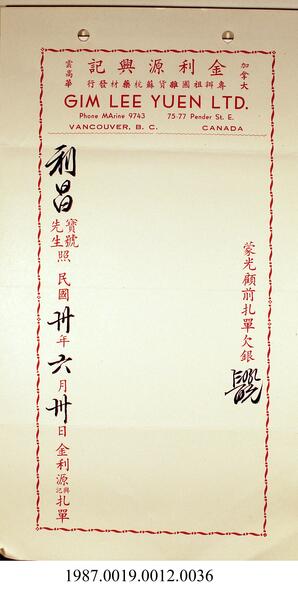 加拿大
金利源興記
雲高華
專辦祖國雜貨蘇杭藥材發行
GIM LEE YUEN LTD.
Phone MArine 9743 75-77 Pender St. E.
VANCOUVER, B. C. CANADA
蒙光顧前扎單欠銀
利昌寶號先生照 民國卅年六月卅日金利源興記扎單
1987.0019.0012.0036